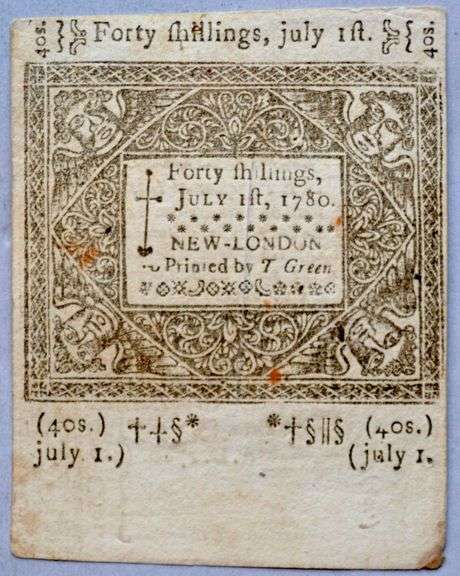 40s.
Forty ſhillings, july 1ſt.
40s.
Forty ſhillings,
JULY 1ſt, 1780.
* * * * * * * * *
* * * * * * * *
NEW-LONDON
Printed by T Green
(40s.) ††§* *†§||§ (40s.)
july 1.) (july 1.